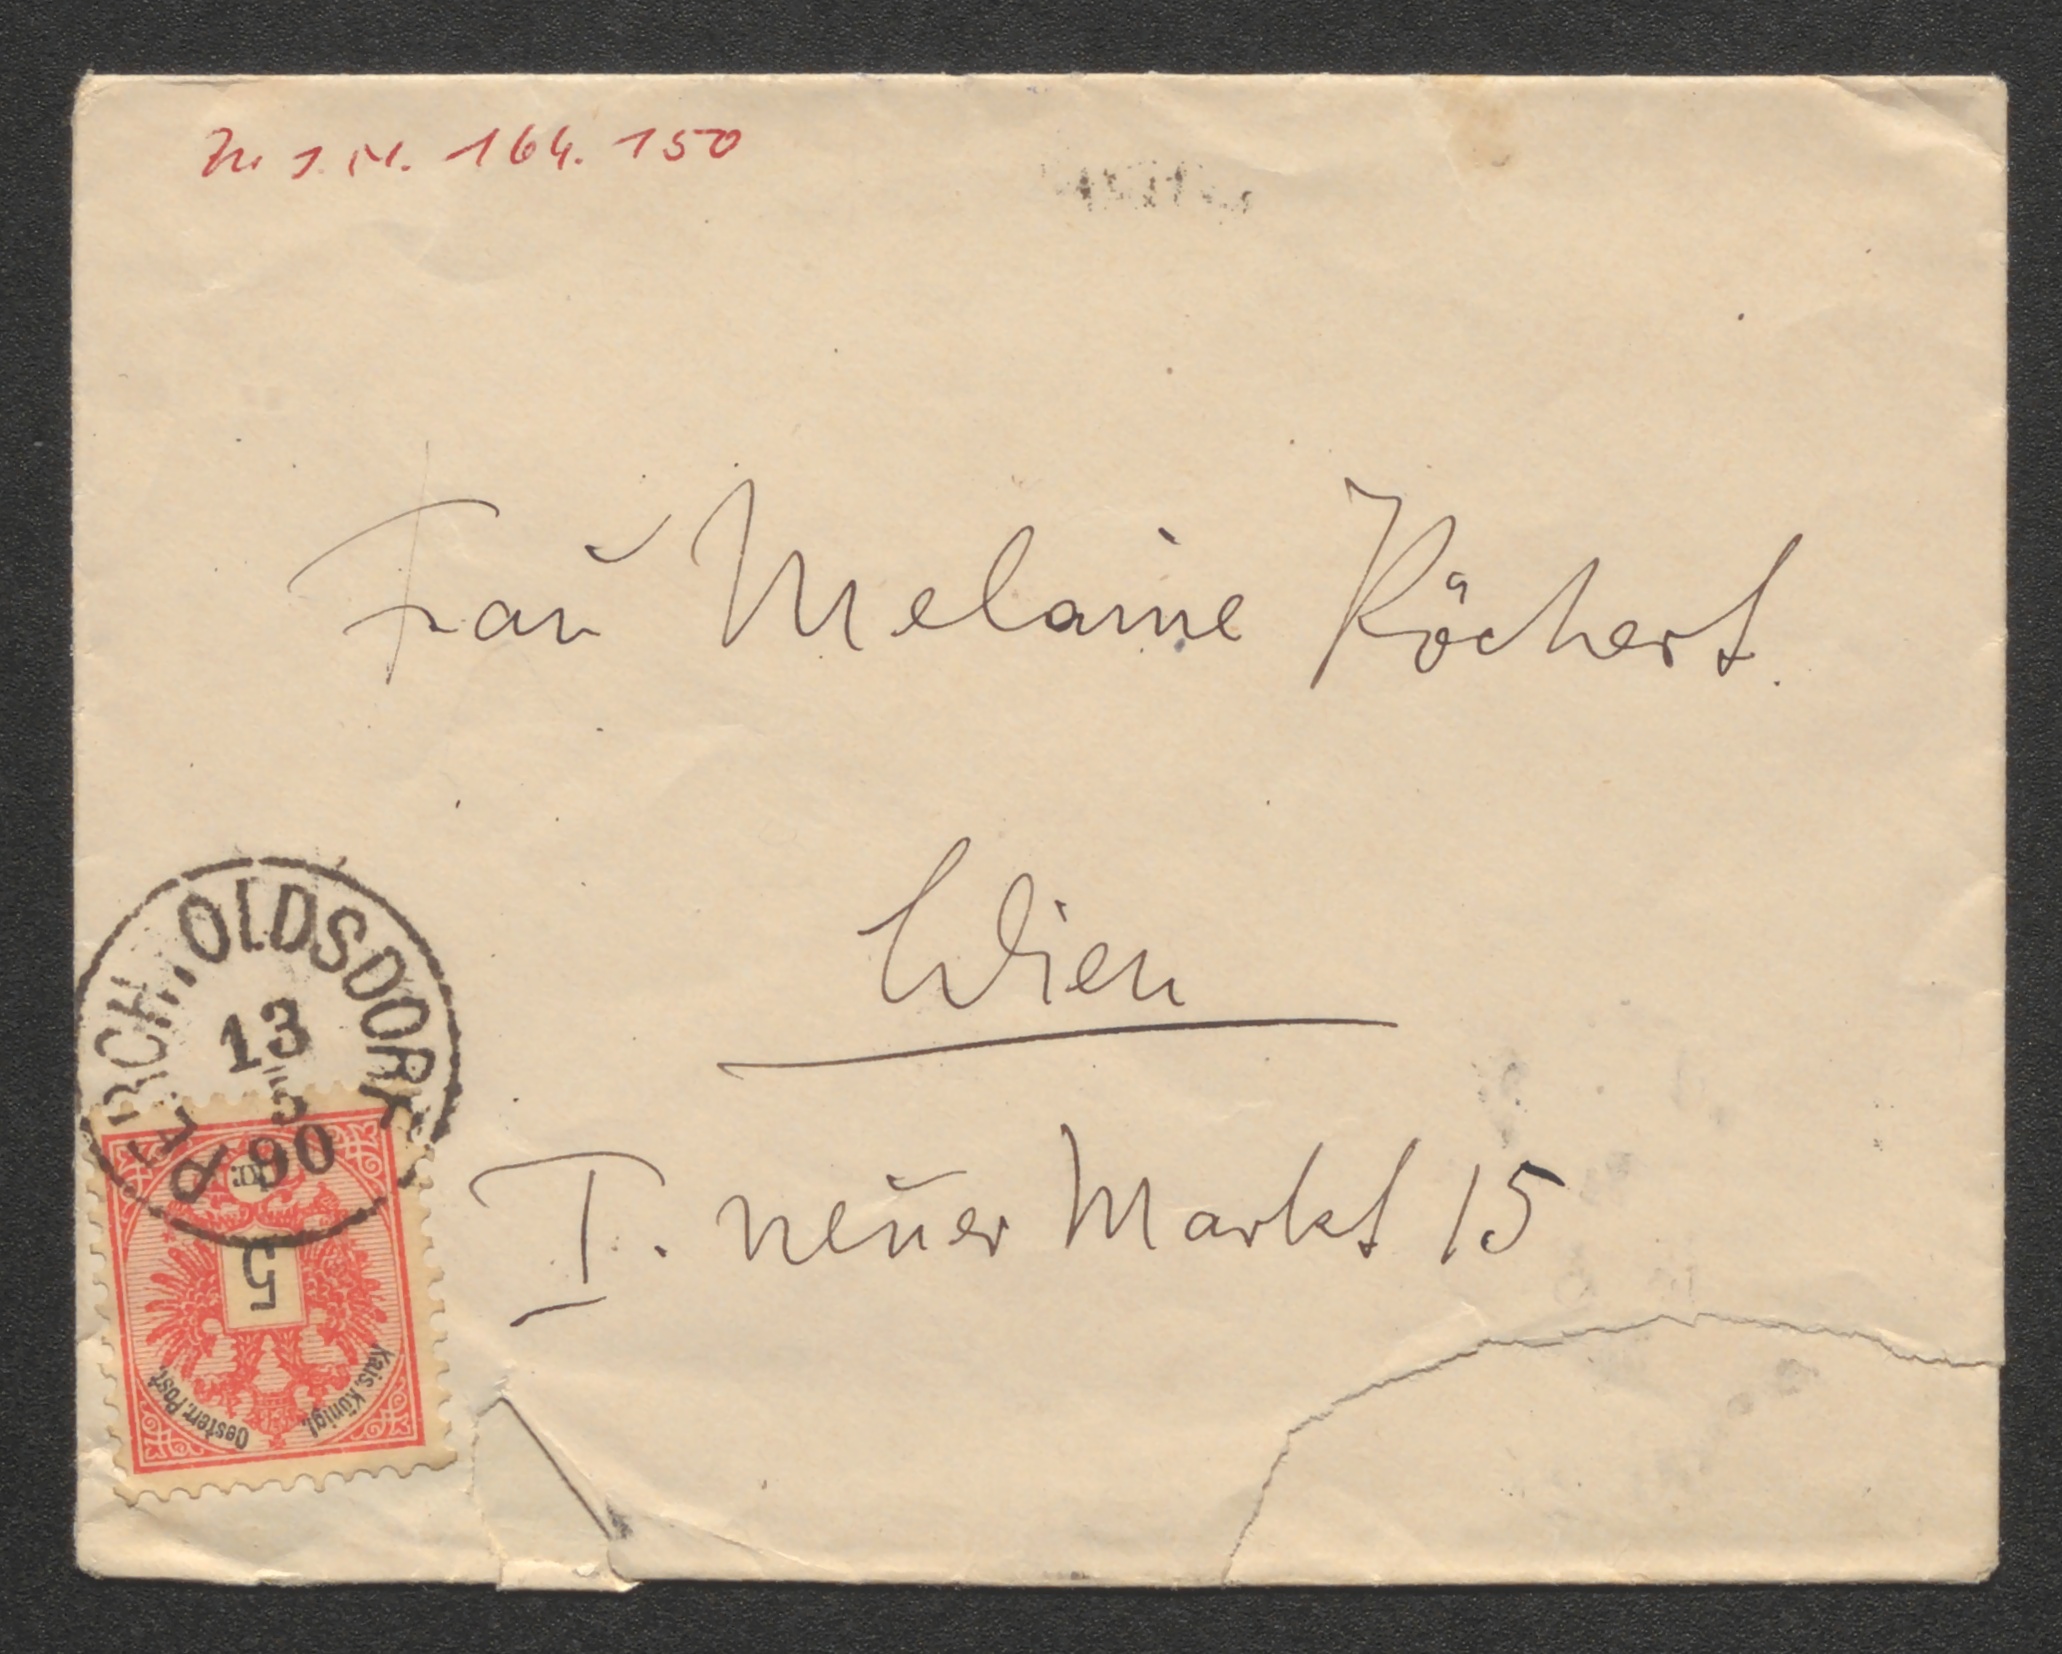 Zu I.N. 164.150
Frau Melanie Köchert.
Wien
I. neuer Markt 15
PERCHTOLDSDORF
13
5
90
kr.
5
Kais. Königl.
Oesterr. Post.